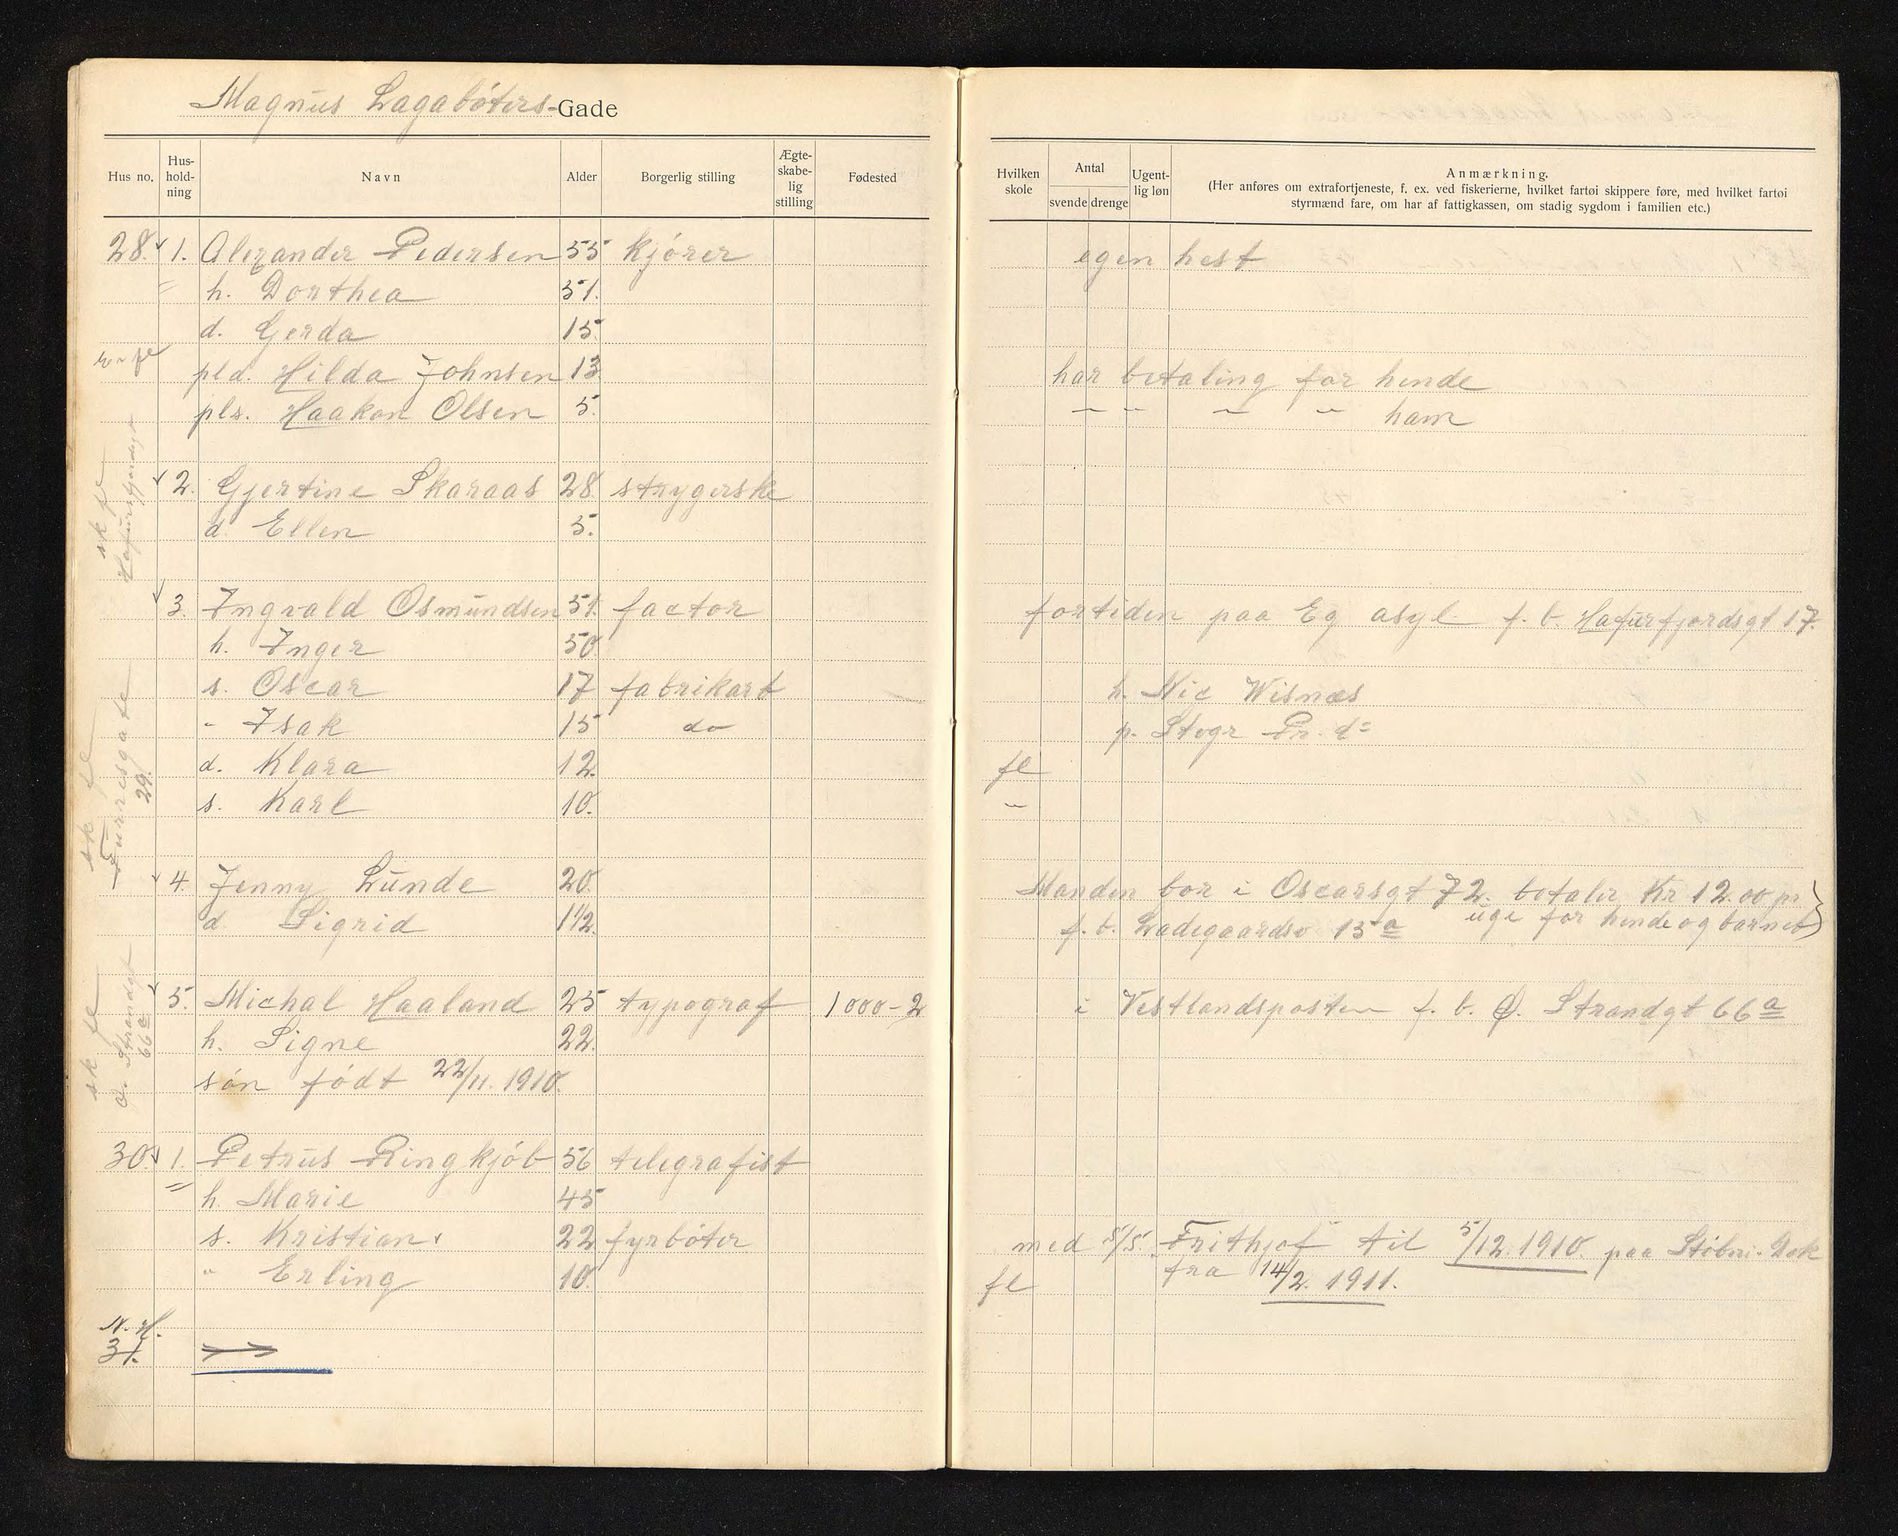 Magnus Lagabøters-Gade
Hus no.
Hus-
hold-
ning
Navn
Alder
Borgerlig stilling
Ægte-
skabe-
lig
stilling
Fødested
Hvilken
skole
Antal
svende drenge
Ugent-
lig løn
Anmærkning.
(Her anføres om extrafortjeneste, f. ex. ved fiskerierne, hvilket fartøi skippere føre, med hvilket fartøi
styrmænd fare, om har af fattigkassen, om stadig sygdom i familien etc.)
28. 1. Alexander Pedersen 55 kjører egen hest
h. Dorthea 51.
d. Gerda 15
pld. Hilda Johnsen 13 har betaling for hende
pls. Haakon Olsen 5. " " " " ham
sk fl
Hafursfjordsgt
2. Gjertine Skaraas 28 strygerske
d. Ellen 5.
3. Ingvald Osmundsen 51. factor fortiden paa Eg asyl f. b. Hafursfjordsgt 17.
h. Inger 50
s. Oscar 17 fabrikarb h. Nic Wisnæs
" Isak 15 do p. Stogr Pr. d=
d. Klara 12. fl
s. Karl 10. "
sk fl
Furresgate
29.
4. Jenny Lunde 20. Manden bor i Oscarsgt 72. betaler Kr 12.00 pr
d. Sigrid 1 1/2. f. b. Ladegaardsv 15a uge for hende og barnet
sk fl
Ø. Strandgt
66a
5. Michal Haaland 25 typograf 1000-2 i Vestlandsposten f. b. Ø. Strandgt 66a
h. Signe 22.
søn født 22/11. 1910.
30. 1. Petrus Ringkjøb 56 telegrafist
h. Marie 45
s. Kristian 22 fyrbøter med s/s. Frithjof til 5/12. 1910. paa Støberi-Dok
fra 14/2. 1911.
" Erling 10. fl
N. H.
31.